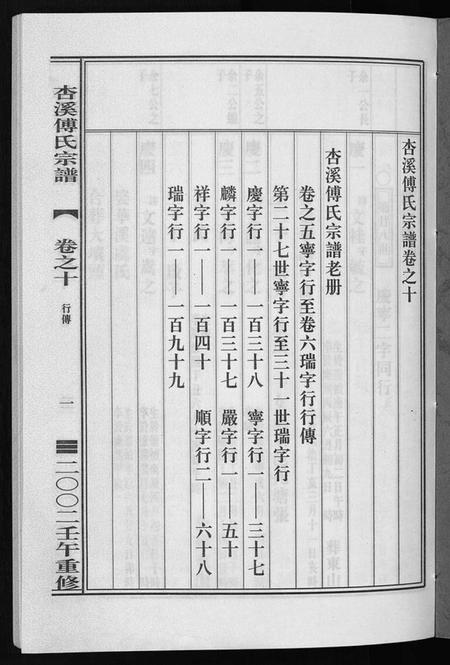 杏溪傅氏宗譜卷之十
杏溪傅氏宗譜老册
卷之五寧字行至卷六瑞字行行傳
第二十七世寧字行至三十一世瑞字行
慶字行一——一百三十八 寧字行一——三十七
麟字行一——一百三十七 嚴字行一——五十
祥字行一——一百四十 順字行二——六十八
瑞字行一——一百九十九
杏溪傅氏宗譜 【 卷之十 行傳 一 二〇〇二壬午重修